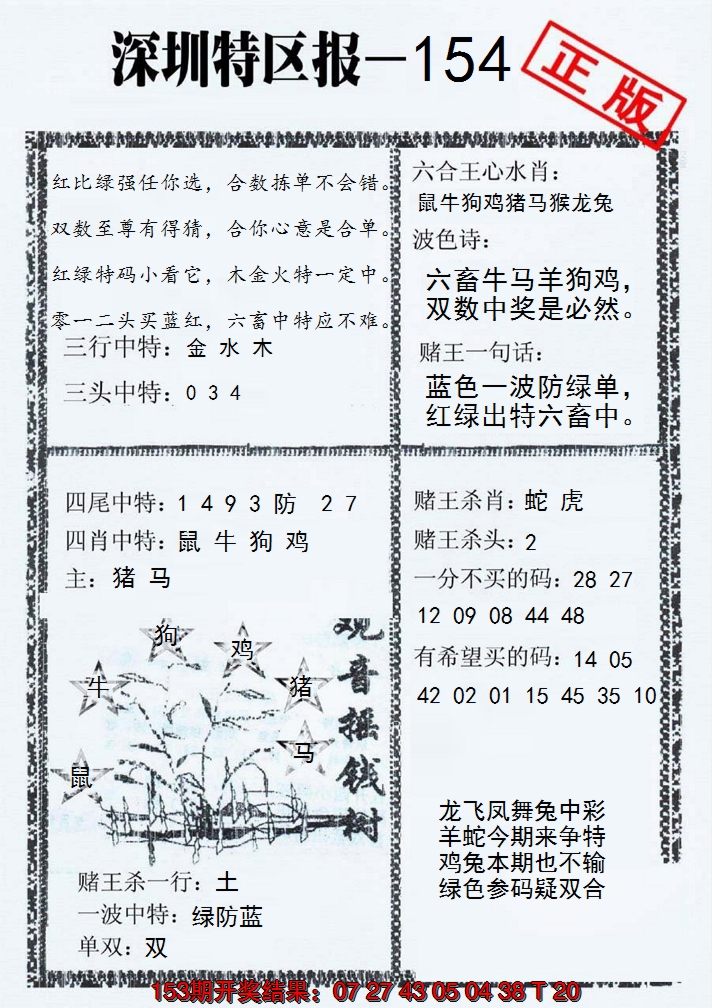 深圳特区报—154
正版
红比绿强任你选，合数拣单不会错。
双数至尊有得猜，合你心意是合单。
红绿特码小看它，木金火特一定中。
零一二头买蓝红，六畜中特应不难。
三行中特：金 水 木
三头中特：0 3 4
六合王心水肖：
鼠牛狗鸡猪马猴龙兔
波色诗：
六畜牛马羊狗鸡，
双数中奖是必然。
赌王一句话：
蓝色一波防绿单，
红绿出特六畜中。
四尾中特：1 4 9 3 防 2 7
四肖中特：鼠 牛 狗 鸡
主：猪 马
狗
鸡
牛
猪
马
鼠
观音摇钱树
赌王杀一行：土
一波中特：绿防蓝
单双：双
赌王杀肖：蛇 虎
赌王杀头：2
一分不买的码：28 27
12 09 08 44 48
有希望买的码：14 05
42 02 01 15 45 35 10
龙飞凤舞兔中彩
羊蛇今期来争特
鸡兔本期也不输
绿色参码疑双合
153期开奖结果：07 27 43 05 04 38 T 20